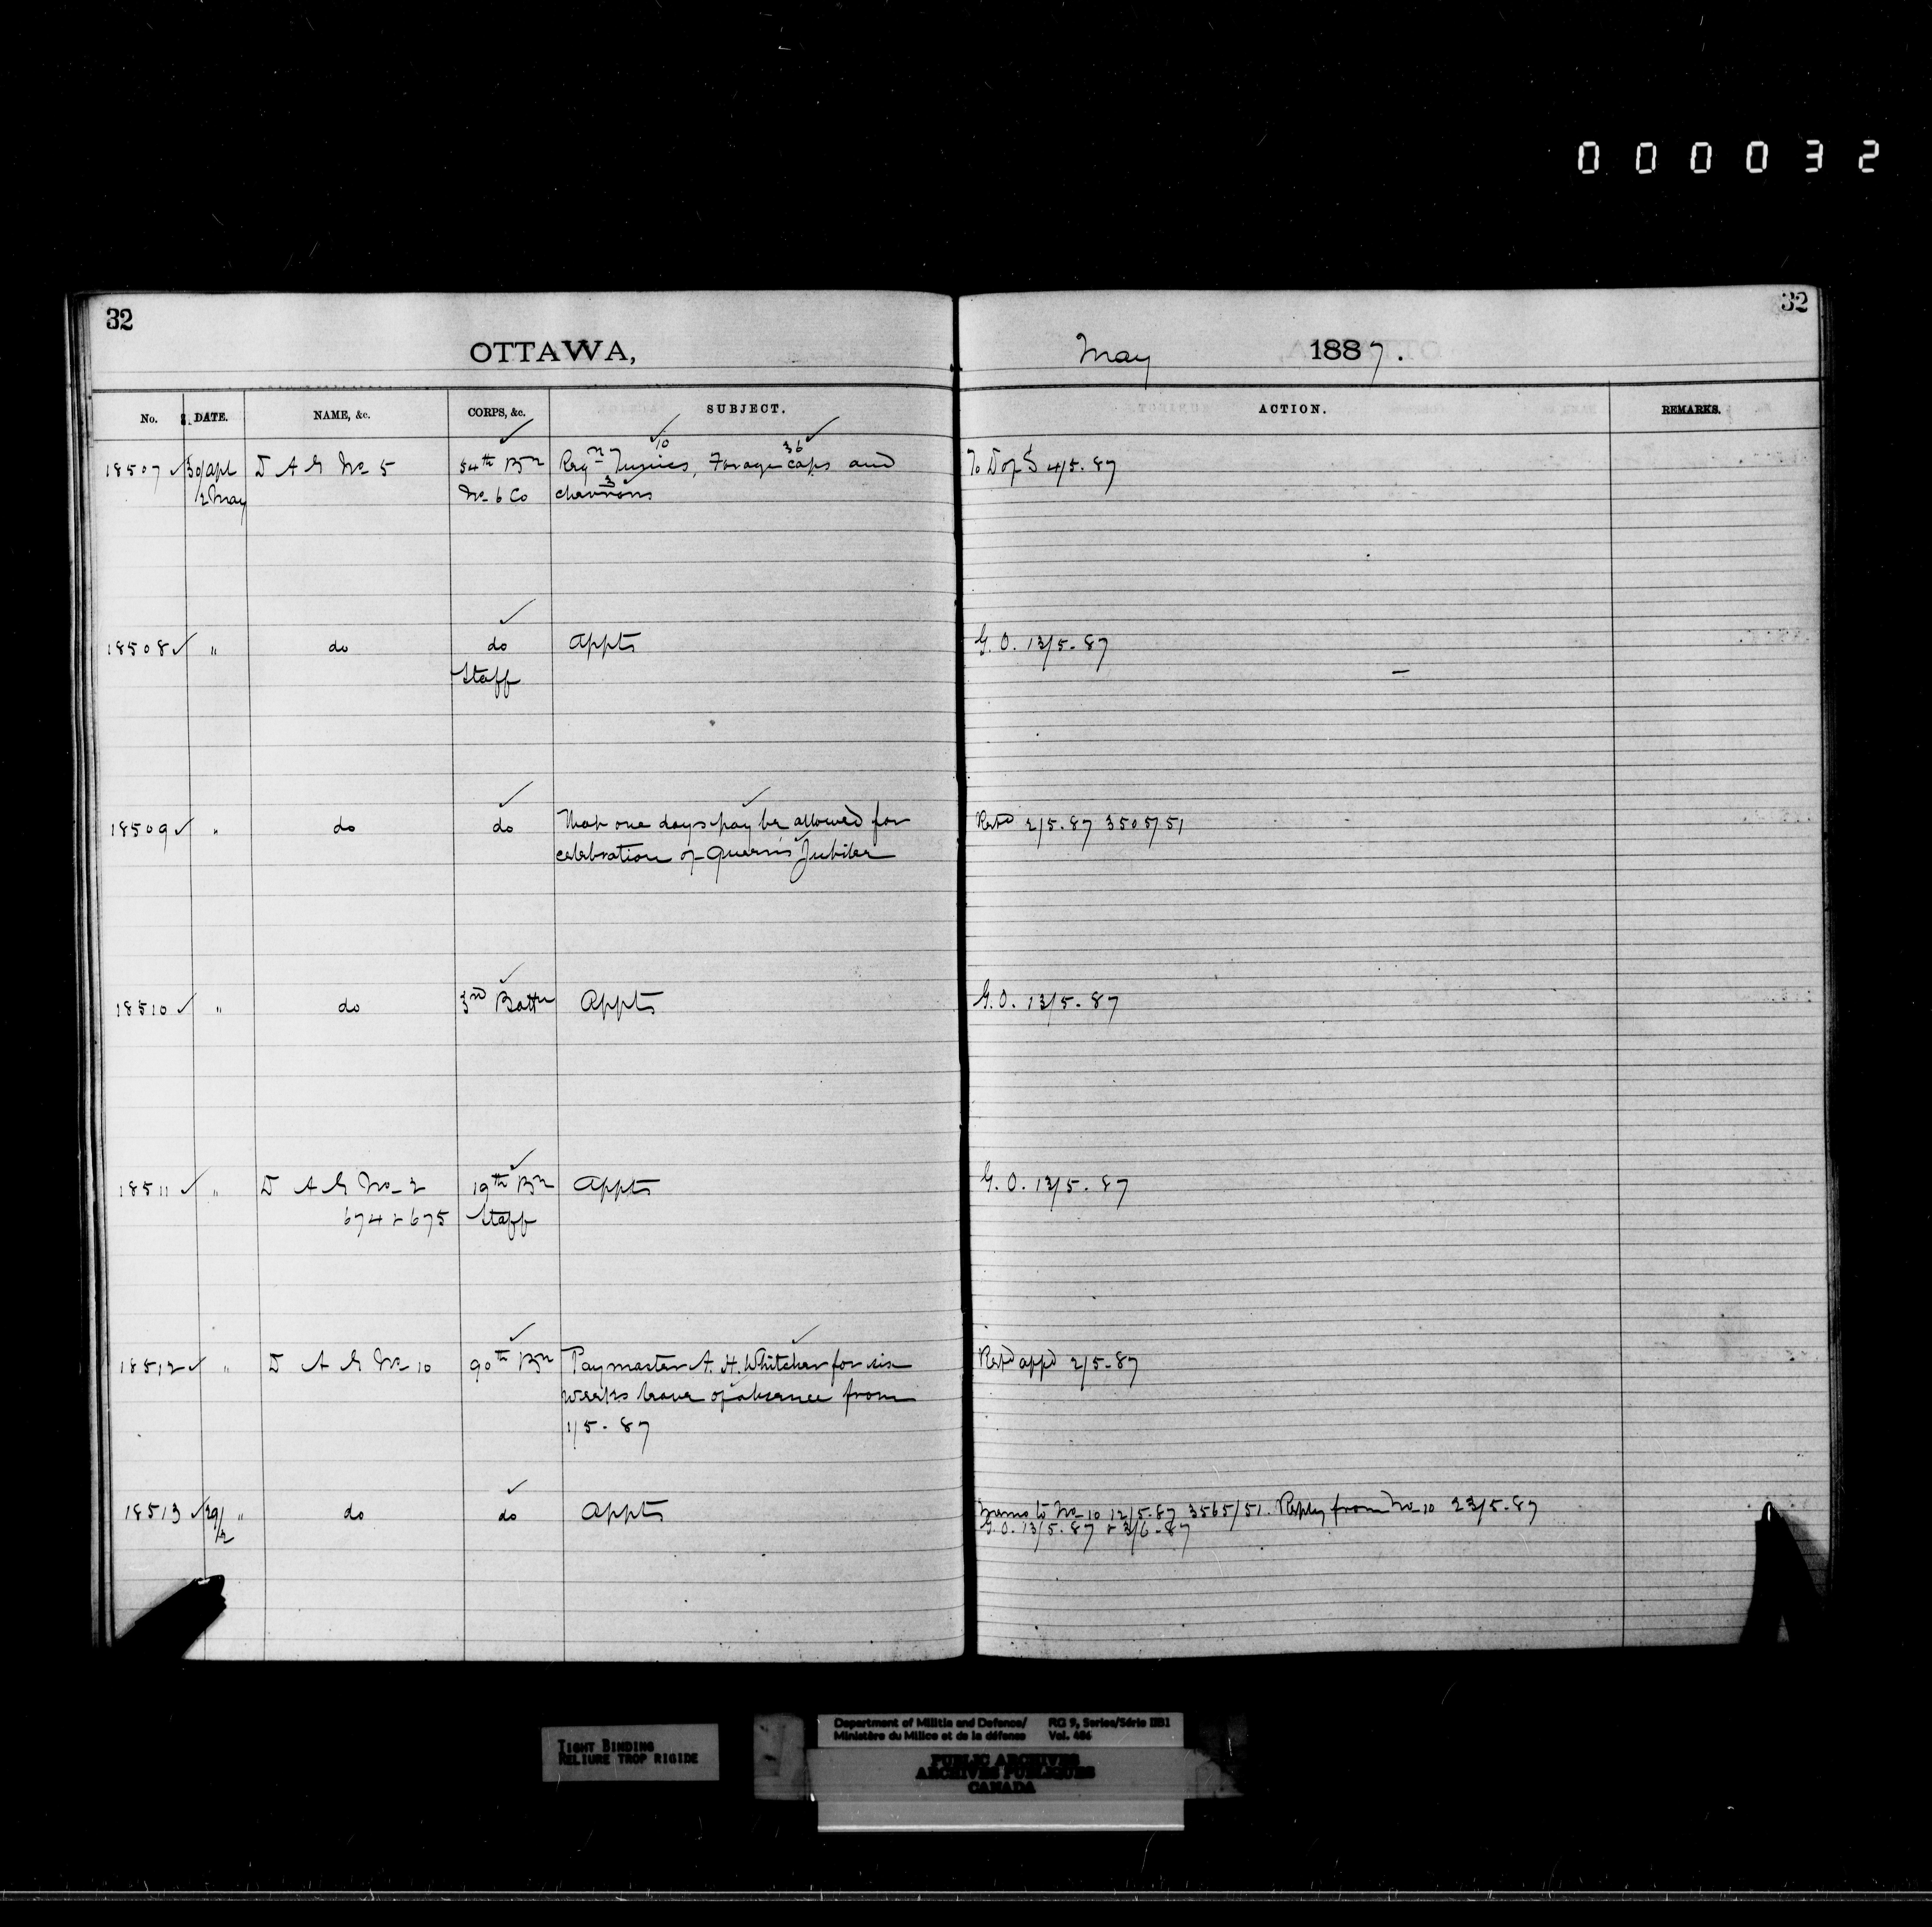 000032
32
OTTAWA,
May 1887.
32
No. DATE. NAME, &c. CORPS, &c. SUBJECT. ACTION. REMARKS.
18507 ✓ 30/apl D A G No 5 54th Bn Reqn Tunics 10, Forage caps 36 and To D of S 4/5.87
/2 May No 6 Co chevrons 3
18508 ✓ " do do Appts G. O. 13/5-87
Staff
18509 ✓ " do do That one days pay be allowed for Repd 2/5.87 3505/51
celebration of Queen's Jubilee
18510 ✓ " do 3rd Battn Appts G. O. 13/5-87
18511 ✓ " D A G No 2 19th Bn Appts G. O. 13/5-87
674 & 675 Staff
18512 ✓ " D A G No 10 90th Bn Paymaster A. H. Whitcher for six Repd appd 2/5-87
weeks leave of absence from
1/5-87
18513 ✓ 29/ " do do Appts Memo to No 10 12/5-87 3565/51. Reply from No 10 23/5-87
/2 G. O. 13/5-87 & 3/6-87
TIGHT BINDING
RELIURE TROP RIGIDE
Department of Militia and Defence/ RG 9, Series/Série IIB1
Ministère du Milice et de la défense Vol. 486
PUBLIC ARCHIVES
ARCHIVES PUBLIQUES
CANADA